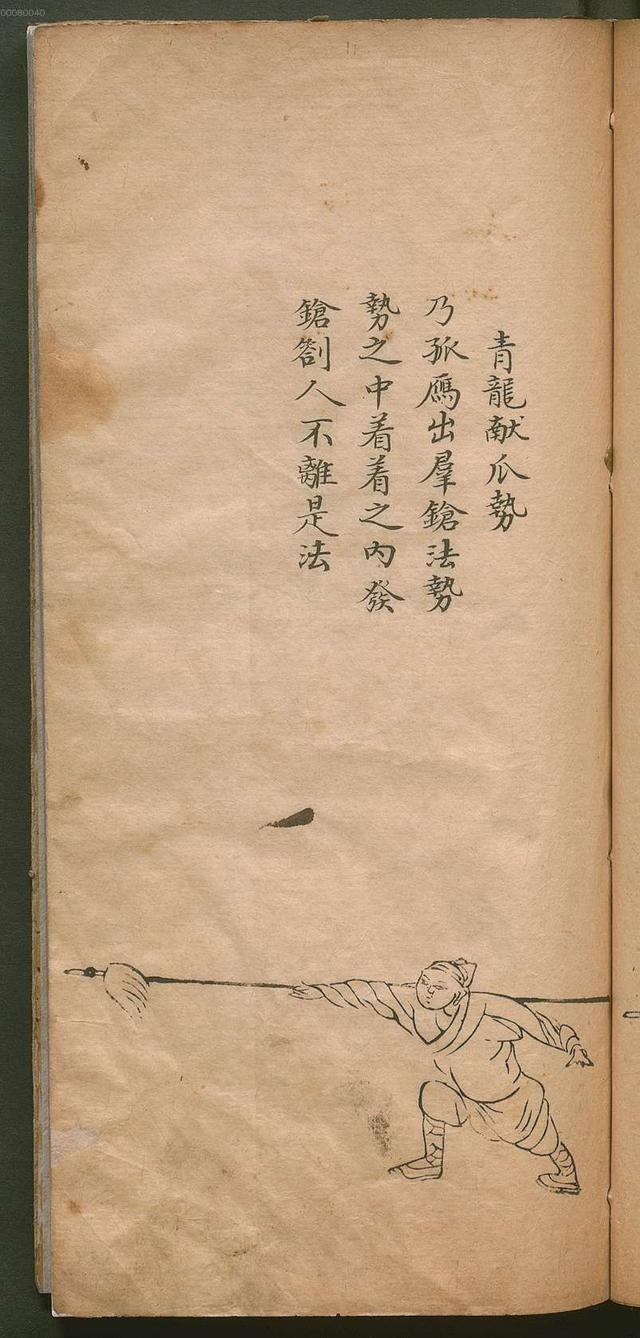 青龍献爪勢
乃孤鴈出羣鎗法勢
勢之中着着之內發
鎗劄人不離是法
00080040